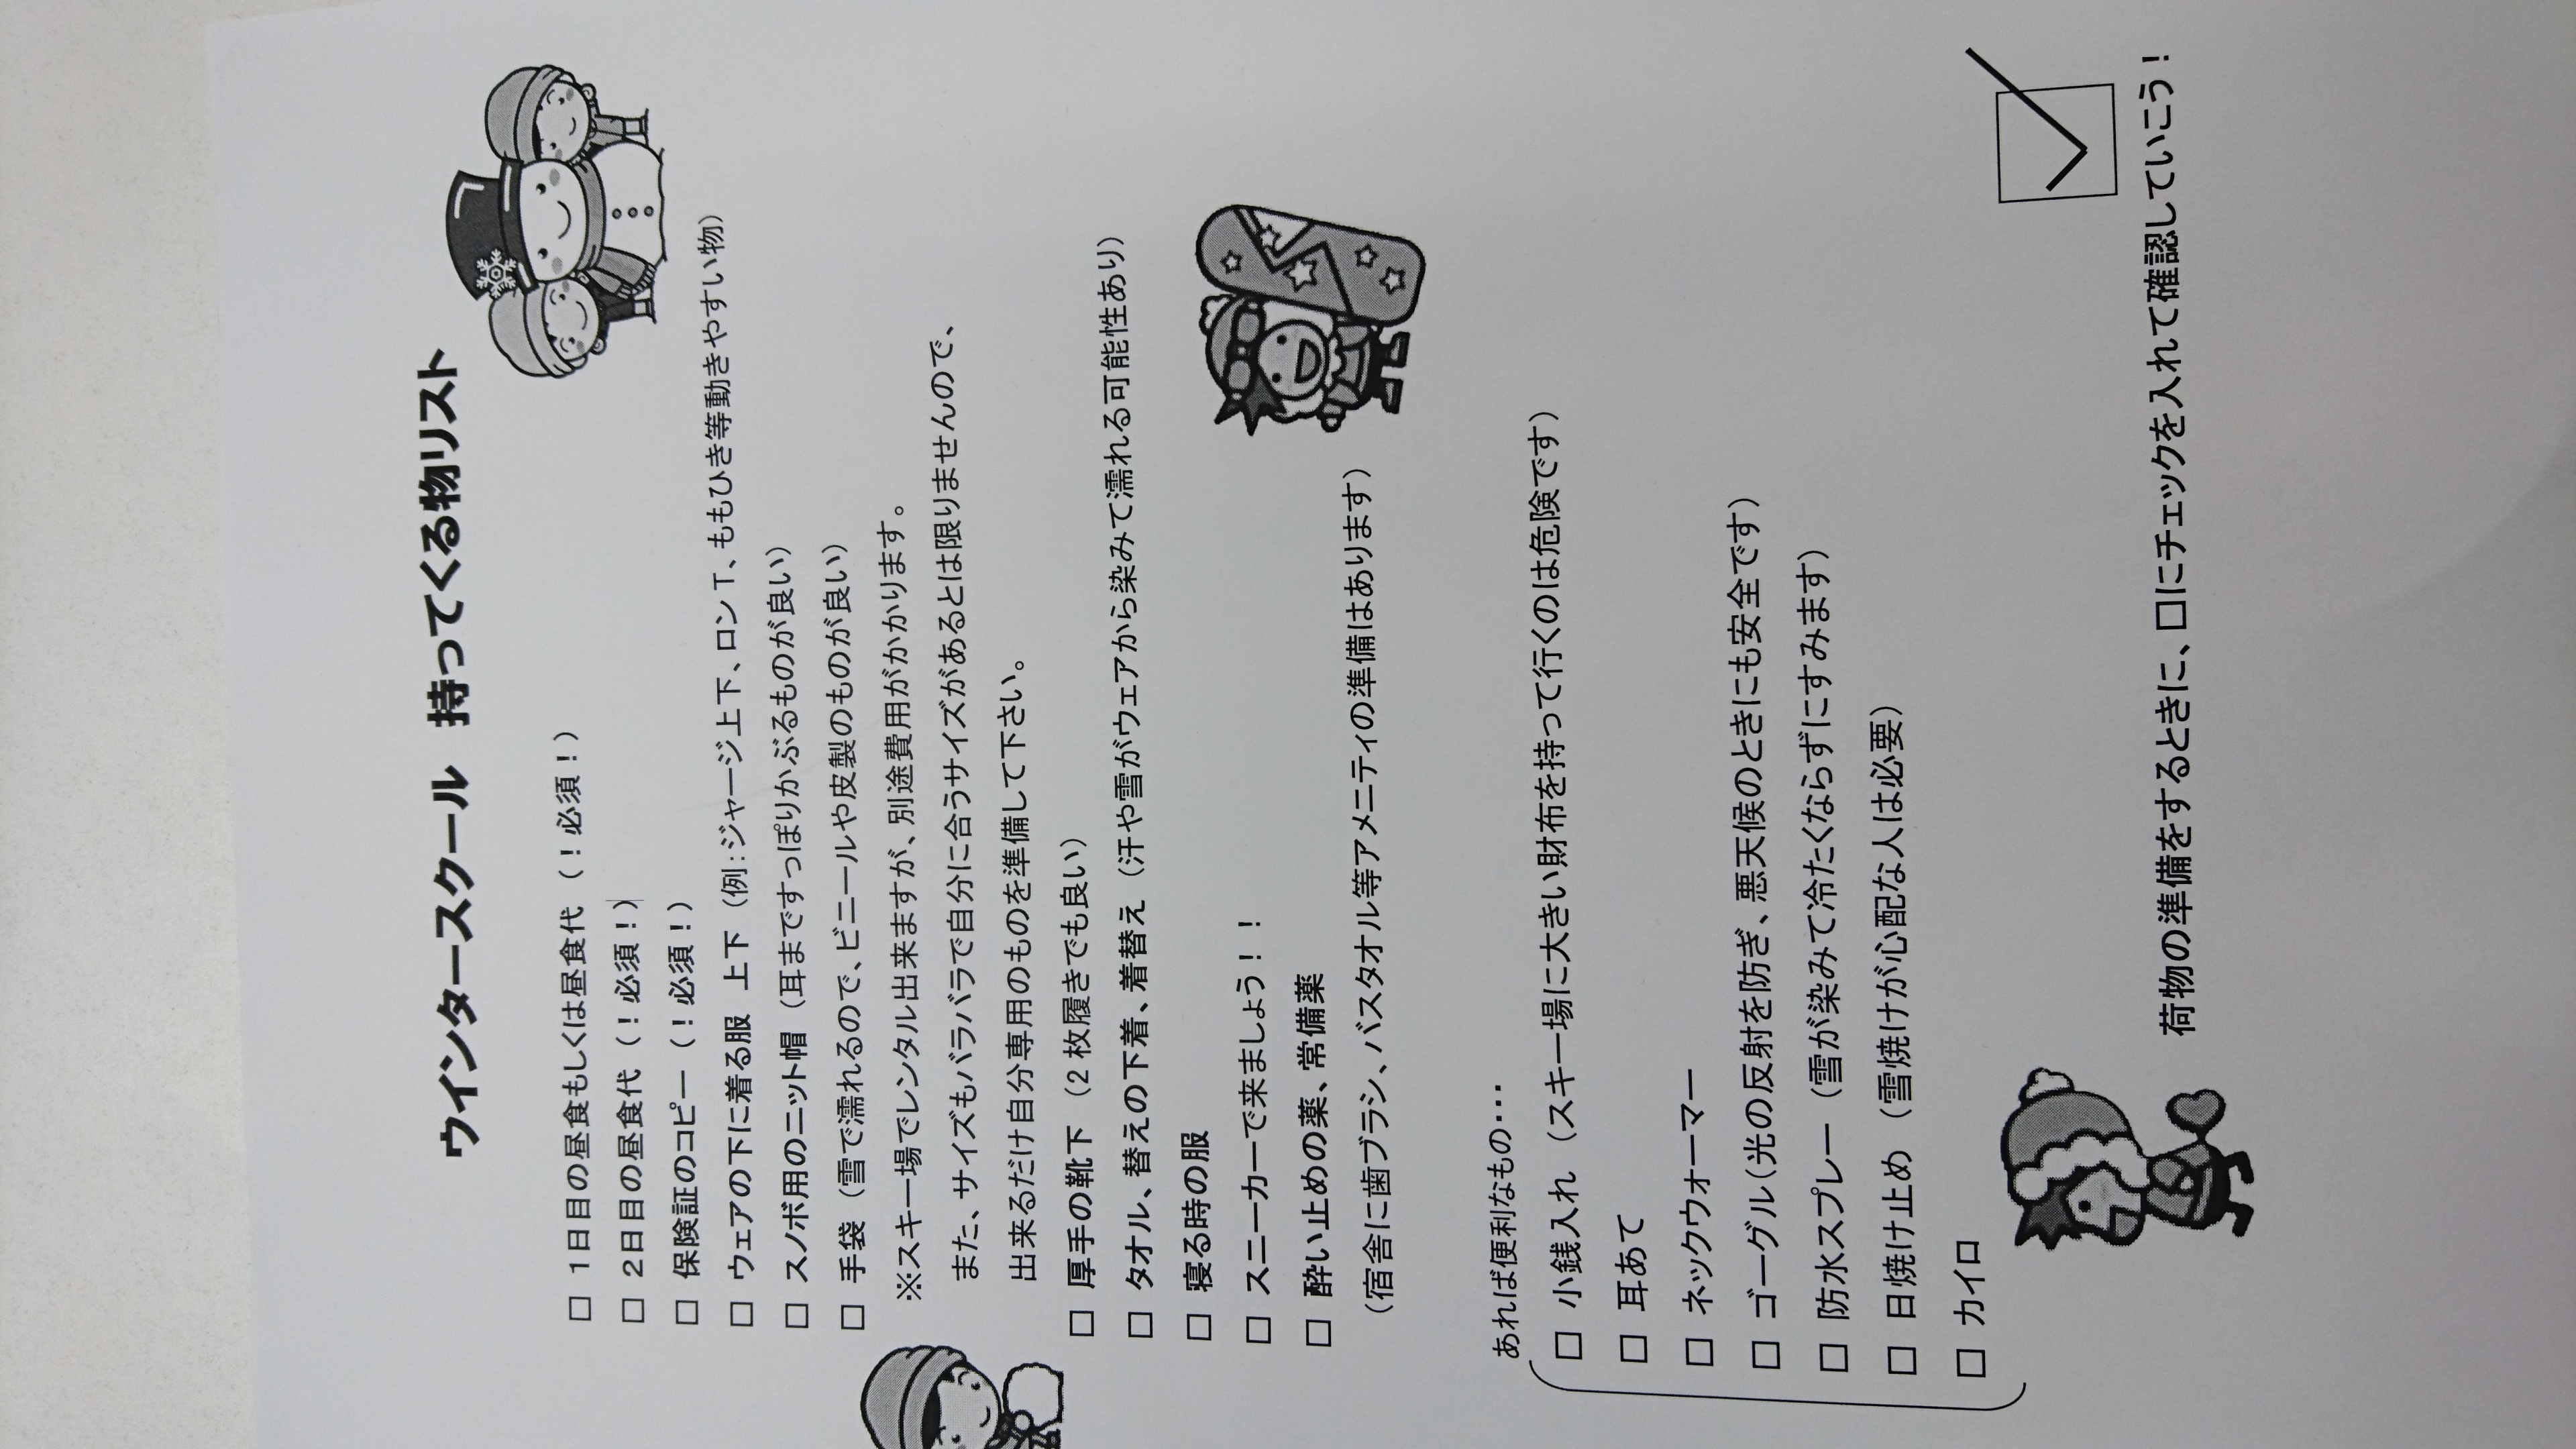 ウインタースクール　持ってくる物リスト
□ 1日目の昼食もしくは昼食代（！必須！）
□ 2日目の昼食代（！必須！）
□ 保険証のコピー（！必須！）
□ ウェアの下に着る服 上下（例：ジャージ上下、ロンT、ももひき等動きやすい物）
□ スノボ用のニット帽（耳まですっぽりかぶるものが良い）
□ 手袋（雪で濡れるので、ビニールや皮製のものが良い）
※スキー場でレンタル出来ますが、別途費用がかかります。
また、サイズもバラバラで自分に合うサイズがあるとは限りませんので、
出来るだけ自分専用のものを準備して下さい。
□ 厚手の靴下（2枚履きでも良い）
□ タオル、替えの下着、着替え（汗や雪がウェアから染みて濡れる可能性あり）
□ 寝る時の服
□ スニーカーで来ましょう！！
□ 酔い止めの薬、常備薬
（宿舎に歯ブラシ、バスタオル等アメニティの準備はあります）
あれば便利なもの・・・
□ 小銭入れ（スキー場に大きい財布を持って行くのは危険です）
□ 耳あて
□ ネックウォーマー
□ ゴーグル（光の反射を防ぎ、悪天候のときにも安全です）
□ 防水スプレー（雪が染みて冷たくならずにすみます）
□ 日焼け止め（雪焼けが心配な人は必要）
□ カイロ
荷物の準備をするときに、□にチェックを入れて確認していこう！